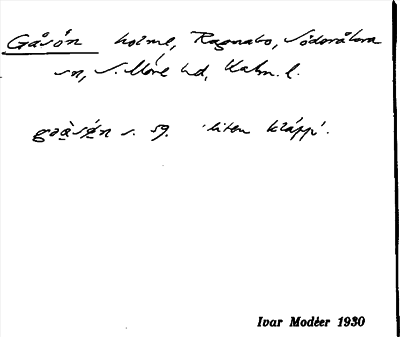 Gåsön holme, Ragnabo, Söderåkra
sn, S. Möre hd, Kalm. l.
s. sg. 'liten kläpp'.
Ivar Modéer 1930